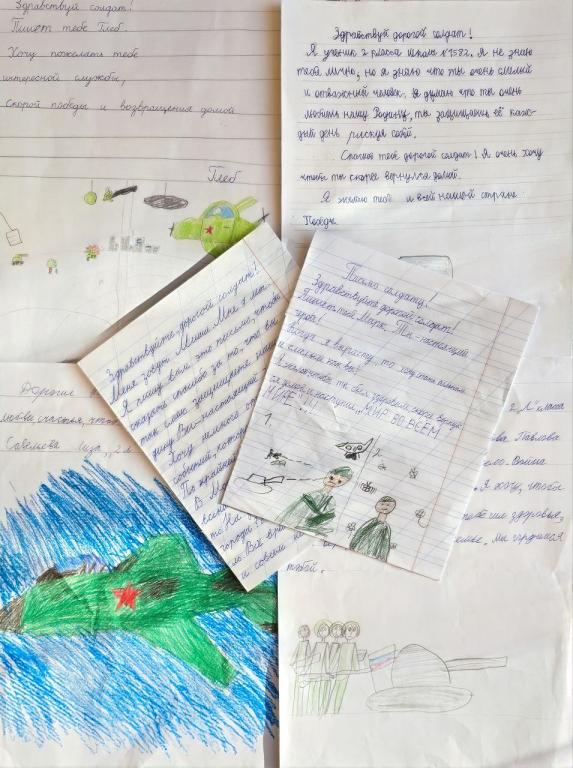 Здравствуй солдат!
Пишет тебе Глеб.
Хочу пожелать тебе
интересной службы,
скорой победы и возвращения домой
Глеб
Здравствуй дорогой солдат!
Я ученик 2 класса школы №1582. Я не знаю
тебя лично, но я знаю что ты очень смелый
и отважный человек. Я думаю что ты очень
любишь нашу Родину, ты защищаешь её каж-
дый день рискуя собой.
Спасибо тебе дорогой солдат! Я очень хочу
чтобы ты скорее вернулся домой.
Я желаю тебе и всей нашей стране
Победы
Здравствуйте, дорогой солдат!
Меня зовут Миша. Мне 8 лет
Я пишу вам это письмо, чтобы
сказать спасибо за то, что вы
так смело защищаете нашу
дину. Вы - настоящий
Хочу немного
событий, кот
По край
В М
всена
то На
города
ль Все вра
и совсем
Письмо солдату!
Здравствуйте дорогой солдат!
Пишет твой Марк. Ты - настоящий
герой!
Когда я вырасту, то хочу стать таким
и смелым как вы!
Я желаю чтоб ты был здоровым, скорее вернул-
ся домой и наступил МИР ВО ВСЕМ
МИРЕ!!!
1.
2.
Дорогие
любви счастья, что
Савельева Лиза, 2 л
2 "Л" класса
ва Павлова
ело. Война
Я хочу, чтобы
тебе здоровья,
емье. Мы гордимся
тобой.